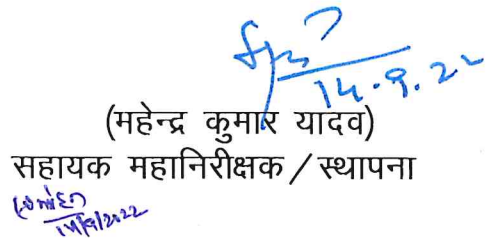 14.9.22
(महेन्द्र कुमार यादव)
सहायक महानिरीक्षक / स्थापना
14/9/2022